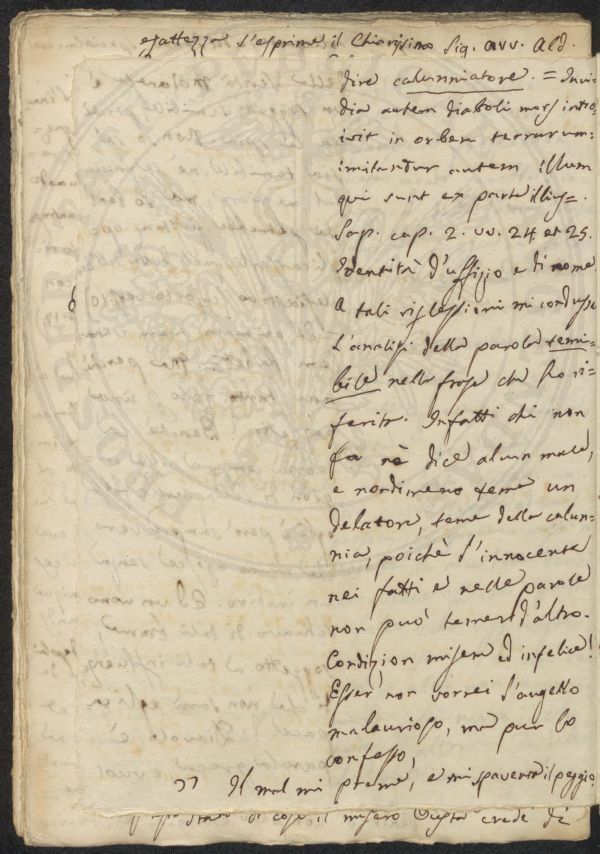 esattezza s'esprime il Chiarissimo Sig. avv. Ald.
dire calunniatore. = Invi=
dia autem diaboli mors intro=
ivit in orbem terrarum=
imitantur autem illum
qui sunt ex parte illius=.
Sap. cap. 2. vv. 24. et 25.
Identità d'uffizio e di nome.
A tali riflessioni mi condusse
l'analisi della parola temi=
bile nella frase che ho ri=
ferita. Infatti chi non
fa nè dice alcun male,
e nondimeno teme un
delatore, teme della calun=
nia, poichè l'innocente
nei fatti e nelle parole
non può temer d'altro.
Condizion misera ed infelice!
Esser non vorrei l'augello
malaurioso, ma pur lo
confesso,
" Il mal mi preme, e mi spaventa il peggio.
di cose il misero credi di